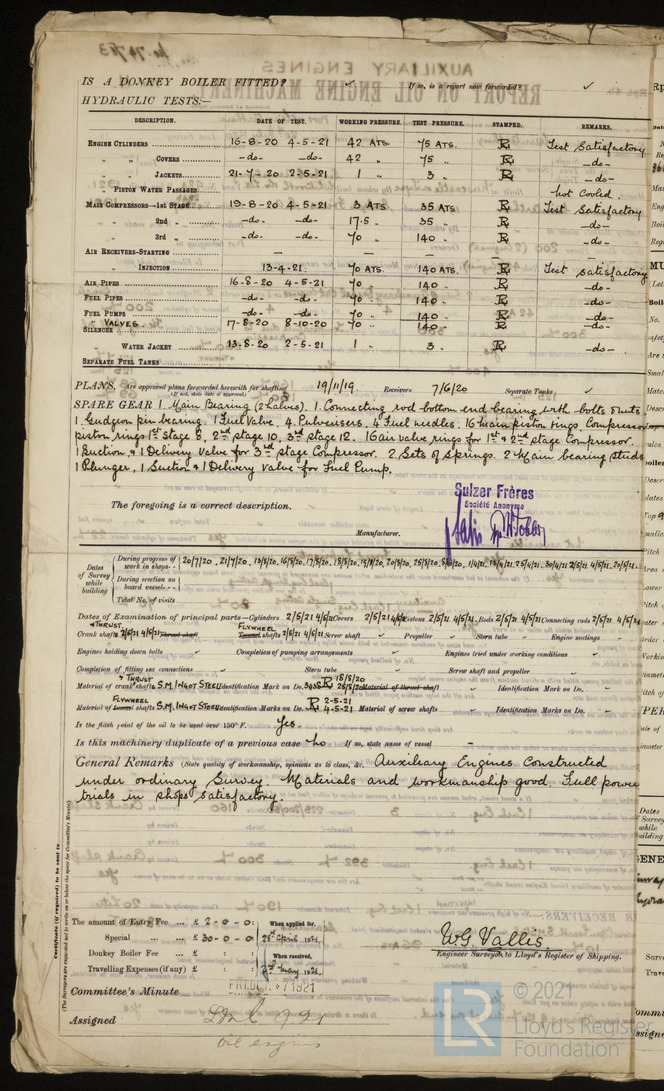 IS A DONKEY BOILER FITTED? ✓ If so, is a report now forwarded? ✓
HYDRAULIC TESTS:—
DESCRIPTION. DATE OF TEST. WORKING PRESSURE. TEST PRESSURE. STAMPED. REMARKS.
ENGINE CYLINDERS 16-8-20 4-5-21 42 ATS. 75 ATS. R Test Satisfactory
" " COVERS -do- -do- 42 " 75 " R -do-
" " JACKETS 21-7-20 2-5-21 1 " 3 " R -do-
" PISTON WATER PASSAGES not Cooled.
MAIN COMPRESSORS—1st STAGE 19-8-20 4-5-21 3 ATS 35 ATS R Test Satisfactory
" 2nd " -do- -do- 17.5 " 35 " R -do-
" 3rd " -do- -do- 70 " 140 " R -do-
AIR RECEIVERS—STARTING — — — —
" INJECTION 13-4-21. 70 ATS 140 ATS R Test Satisfactory
AIR PIPES 16-8-20 4-5-21 70 " 140 " R -do-
FUEL PIPES -do- -do- 70 " 140 " R -do-
FUEL PUMPS -do- -do- 70 " 140 " R -do-
" VALVES. 17-8-20 8-10-20 70 " 140 " R -do-
SILENCER
" WATER JACKET 13-8-20 2-5-21 1 " 3 " R -do-
SEPARATE FUEL TANKS
PLANS. Are approved plans forwarded herewith for shafting 19/11/19 Receivers 7/6/20 Separate Tanks ✓
(If not, state date of approval)
SPARE GEAR 1 Main Bearing (2 halves). 1 Connecting rod bottom end bearing with bolts & nuts
1 Gudgeon pin bearing. 1 Fuel Valve. 4 Pulverisers. 4 Fuel needles. 16 main piston rings. Compressor
piston rings 1st Stage 8, 2nd stage 10, 3rd stage 12. 16 air valve rings for 1st & 2nd stage Compressor.
1 Suction & 1 Delivery Valve for 3rd stage Compressor. 2 Sets of Springs. 2 Main bearing Studs
1 Plunger, 1 Suction & 1 Delivery Valve for Fuel Pump.
Sulzer Frères
Société Anonyme
The foregoing is a correct description.
Manufacturer.
Dates of Survey while building
During progress of work in shops--
During erection on board vessel---
Total No. of visits
Dates of Examination of principal parts—Cylinders 2/5/21 4/5/21 Covers 2/5/21 4/5/21 Pistons 2/5/21 4/5/21 Rods 2/5/21 4/5/21 Connecting rods 2/5/21 4/5/21
& THRUST FLYWHEEL
Crank shaft 2/5/21 4/5/21 Thrust shaft Tunnel shafts 2/5/21 4/5/21 Screw shaft ✓ Propeller ✓ Stern tube ✓ Engine seatings ✓
Engines holding down bolts ✓ Completion of pumping arrangements ✓ Engines tried under working conditions ✓
Completion of fitting sea connections ✓ Stern tube ✓ Screw shaft and propeller ✓
& THRUST 18/8/20
Material of crank shafts S.M. INGOT STEEL Identification Mark on Do. R Material of thrust shaft ✓ Identification Mark on Do. ✓
FLYWHEEL 2-5-21
Material of tunnel shafts S.M. INGOT STEEL Identification Marks on Do. R 4-5-21 Material of screw shafts ✓ Identification Marks on Do. ✓
Is the flash point of the oil to be used over 150° F. Yes.
Is this machinery duplicate of a previous case No If so, state name of vessel —
General Remarks (State quality of workmanship, opinions as to class, &c. Auxiliary Engines Constructed
under ordinary Survey. Materials and workmanship good. Full power
trials in shops satisfactory.
Certificate (if required) to be sent to
(The Surveyors are requested not to write on or below the space for Committee's Minute)
The amount of Entry Fee ... £ 2-0-0 When applied for,
Special ... £ 30-0-0 28th April 1921.
Donkey Boiler Fee ... £ When received,
Travelling Expenses (if any) £
W.G. Vallis.
Engineer Surveyor to Lloyd's Register of Shipping.
Committee's Minute
Assigned
Oil engines
LR
© 2021
Lloyd's Register
Foundation